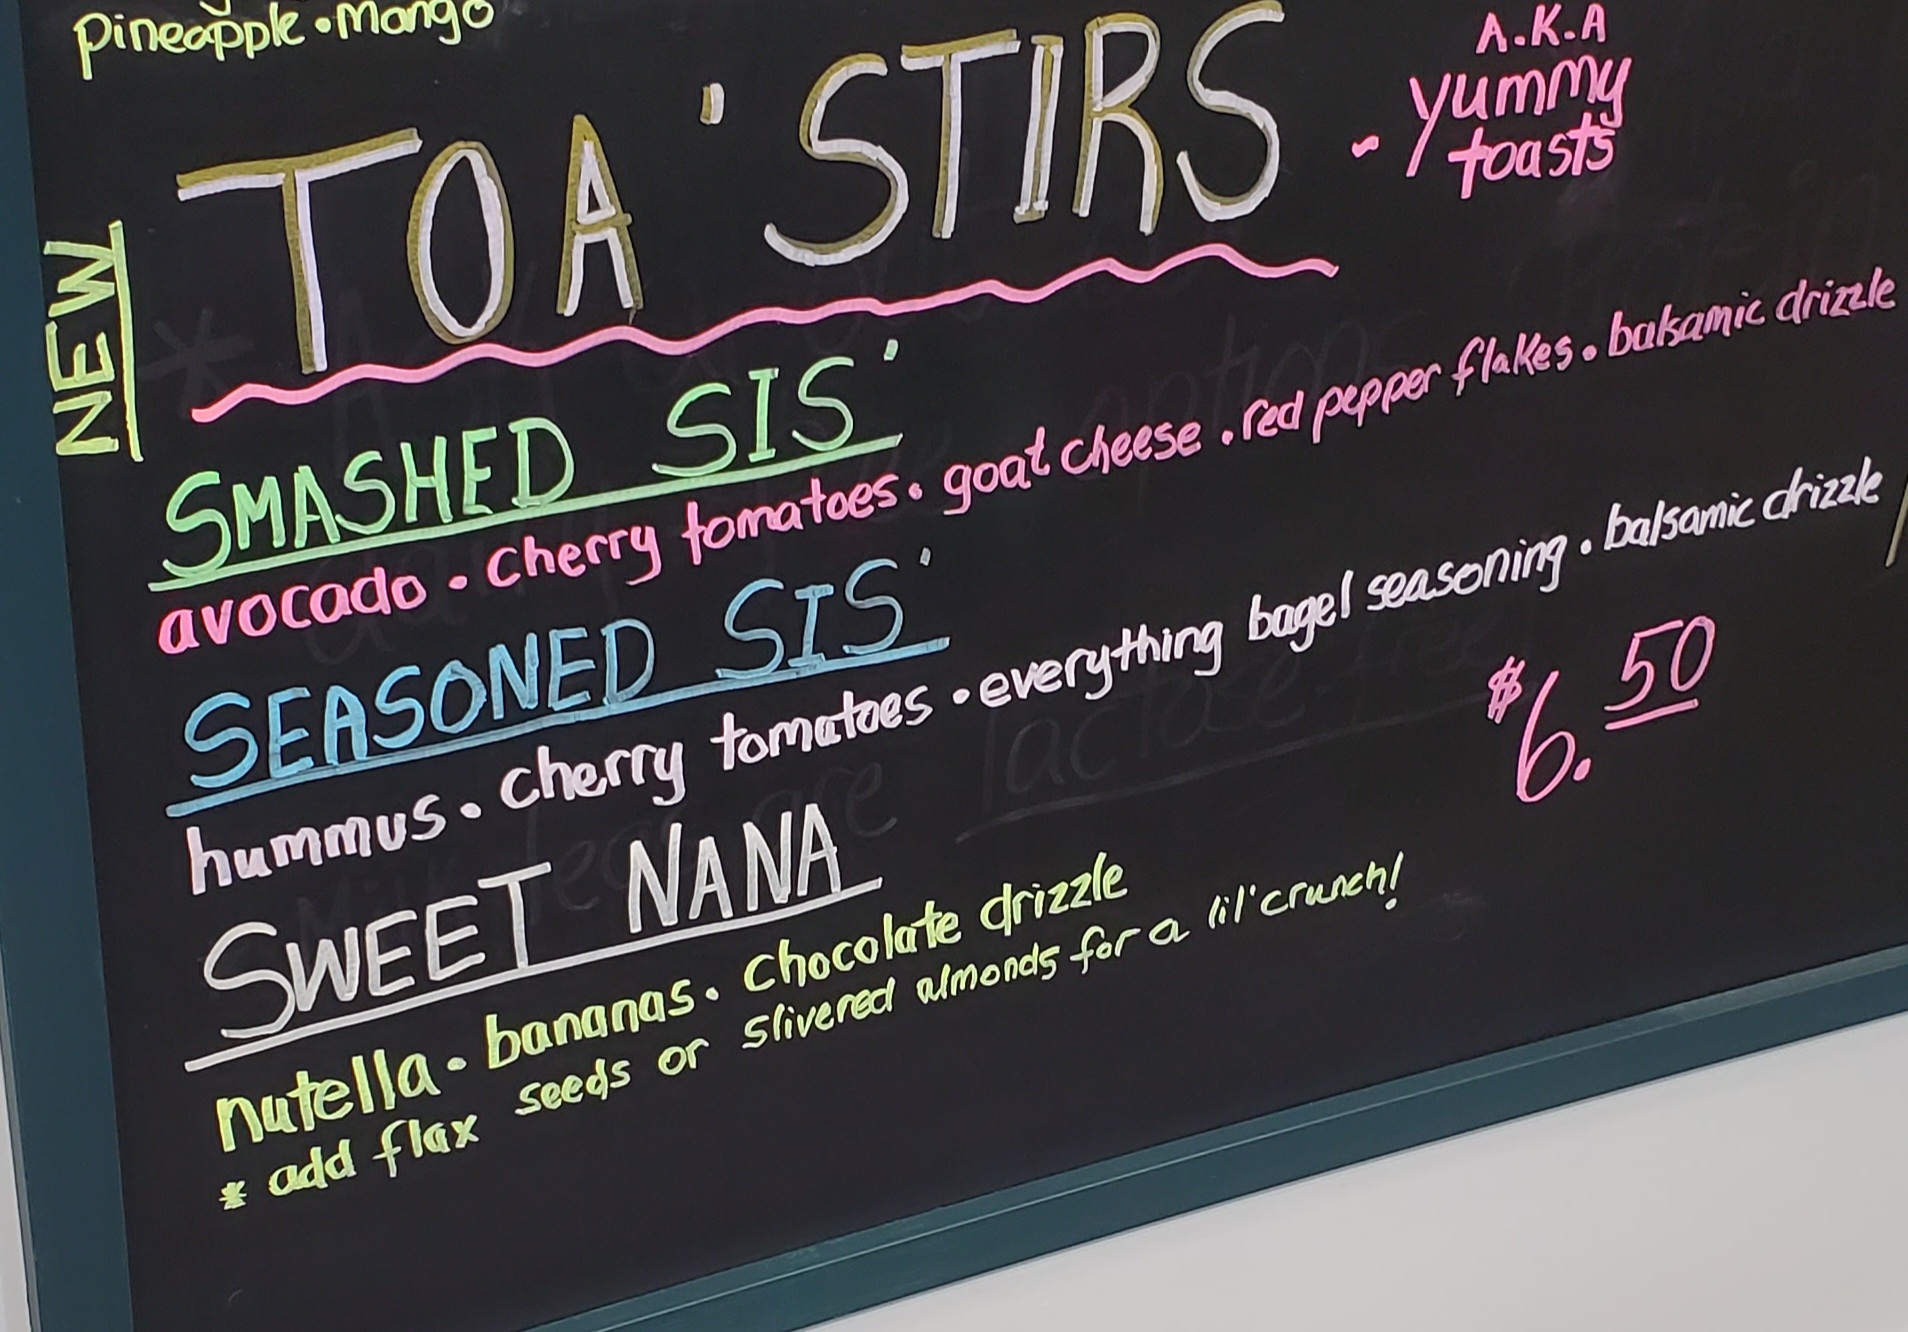 pineapple • mango
NEW
TOA'STIRS
A.K.A
- yummy
toasts
SMASHED SIS'
avocado • cherry tomatoes • goat cheese • red pepper flakes • balsamic drizzle
SEASONED SIS'
hummus • cherry tomatoes • everything bagel seasoning • balsamic drizzle
$6.50
SWEET NANA
nutella • bananas • chocolate drizzle
* add flax seeds or slivered almonds for a lil' crunch!